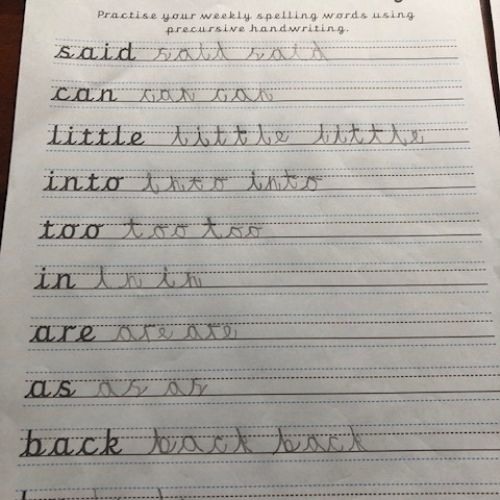 Practise your weekly spelling words using
precursive handwriting.
said said said
can can can
little little little
into into into
too too too
in in in
are are are
as as as
back back back